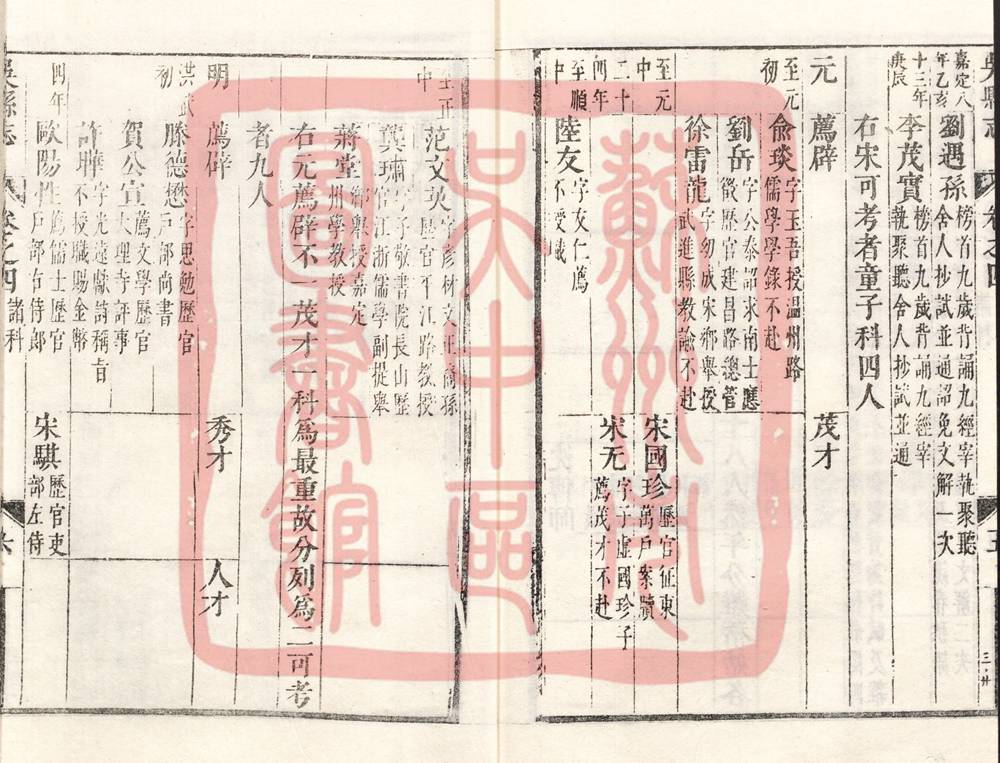 吳縣志
卷之四
嘉定八年乙亥
劉遇孫 榜首九歲背誦九經宰執聚聽舍人抄試並通詔免文解一次
十三年庚辰
李茂實 榜首九歲背誦九經宰執聚聽舍人抄試並通
右宋可考者童子科四人
元 薦辟 茂才
至元初
俞琰 字玉吾授溫州路儒學學錄不赴
劉岳 字公泰詔求南士應徵歷官建昌路總管
徐雷龍 字幼成宋鄉舉授武進縣教諭不赴
至元中
宋國珍 歷官征東萬戶案牘
二十四年
宋无 字子虛國珍子薦茂才不赴
至順中
陸友 字友仁薦不授職
至正中
范文英 字彥材文正裔孫歷官平江路教授
龔璛 字子敬書院長山歷官江浙儒學副提舉
蔣堂 鄉舉授嘉定州學教授
右元薦辟不一茂才一科為最重故分列為二可考
者九人
明 薦辟 秀才 人才
洪武初
滕德懋 字思勉歷官戶部尚書
賀公宣 薦文學歷官大理寺評事
許曄 字光遠獻詩稱旨不授職賜金幣
四年
歐陽性 薦儒士歷官戶部右侍郎
宋騏 歷官吏部左侍
吳縣志
卷之四 諸科
六
蘇州市吳中區圖書館